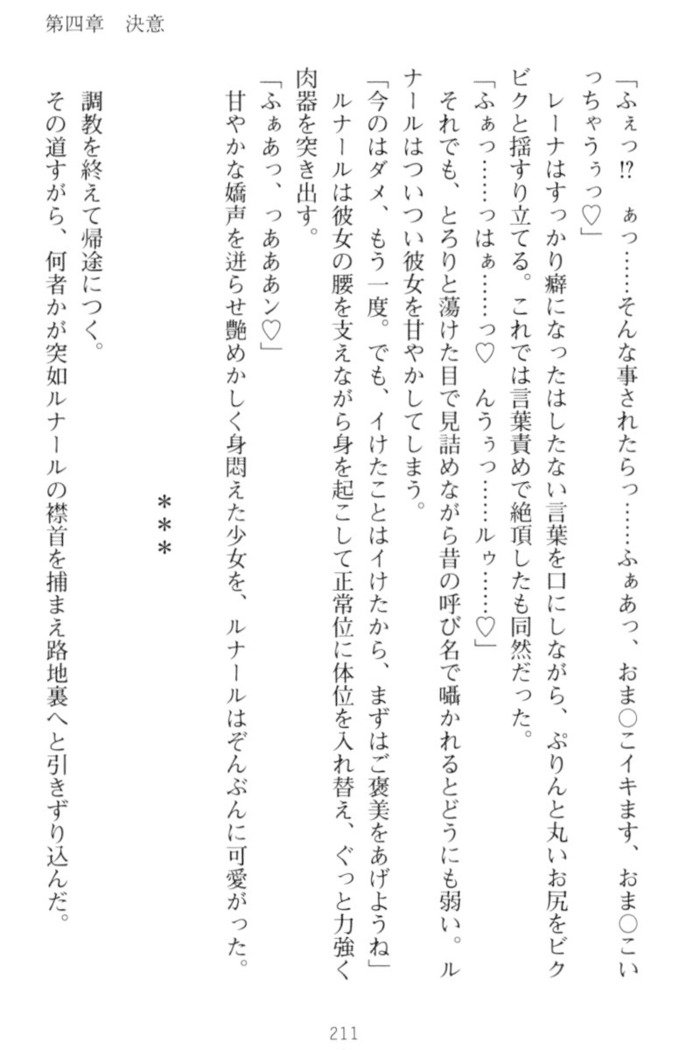 第四章　決意
「ふぇっ!?　ぁっ……そんな事されたらっ……ふぁあっ、おま〇こイキます、おま〇こい
っちゃうぅっ♡」
レーナはすっかり癖になったはしたない言葉を口にしながら、ぷりんと丸いお尻をビク
ビクと揺すり立てる。これでは言葉責めで絶頂したも同然だった。
「ふぁっ……っはぁ……っ♡　んうぅっ……ルゥ……♡」
それでも、とろりと蕩けた目で見詰めながら昔の呼び名で囁かれるとどうにも弱い。ル
ナールはついつい彼女を甘やかしてしまう。
「今のはダメ、もう一度。でも、イけたことはイけたから、まずはご褒美をあげようね」
ルナールは彼女の腰を支えながら身を起こして正常位に体位を入れ替え、ぐっと力強く
肉器を突き出す。
「ふぁあっ、っあああン♡」
甘やかな嬌声を迸らせ艶めかしく身悶えた少女を、ルナールはぞんぶんに可愛がった。
＊＊＊
調教を終えて帰途につく。
その道すがら、何者かが突如ルナールの襟首を捕まえ路地裏へと引きずり込んだ。
211